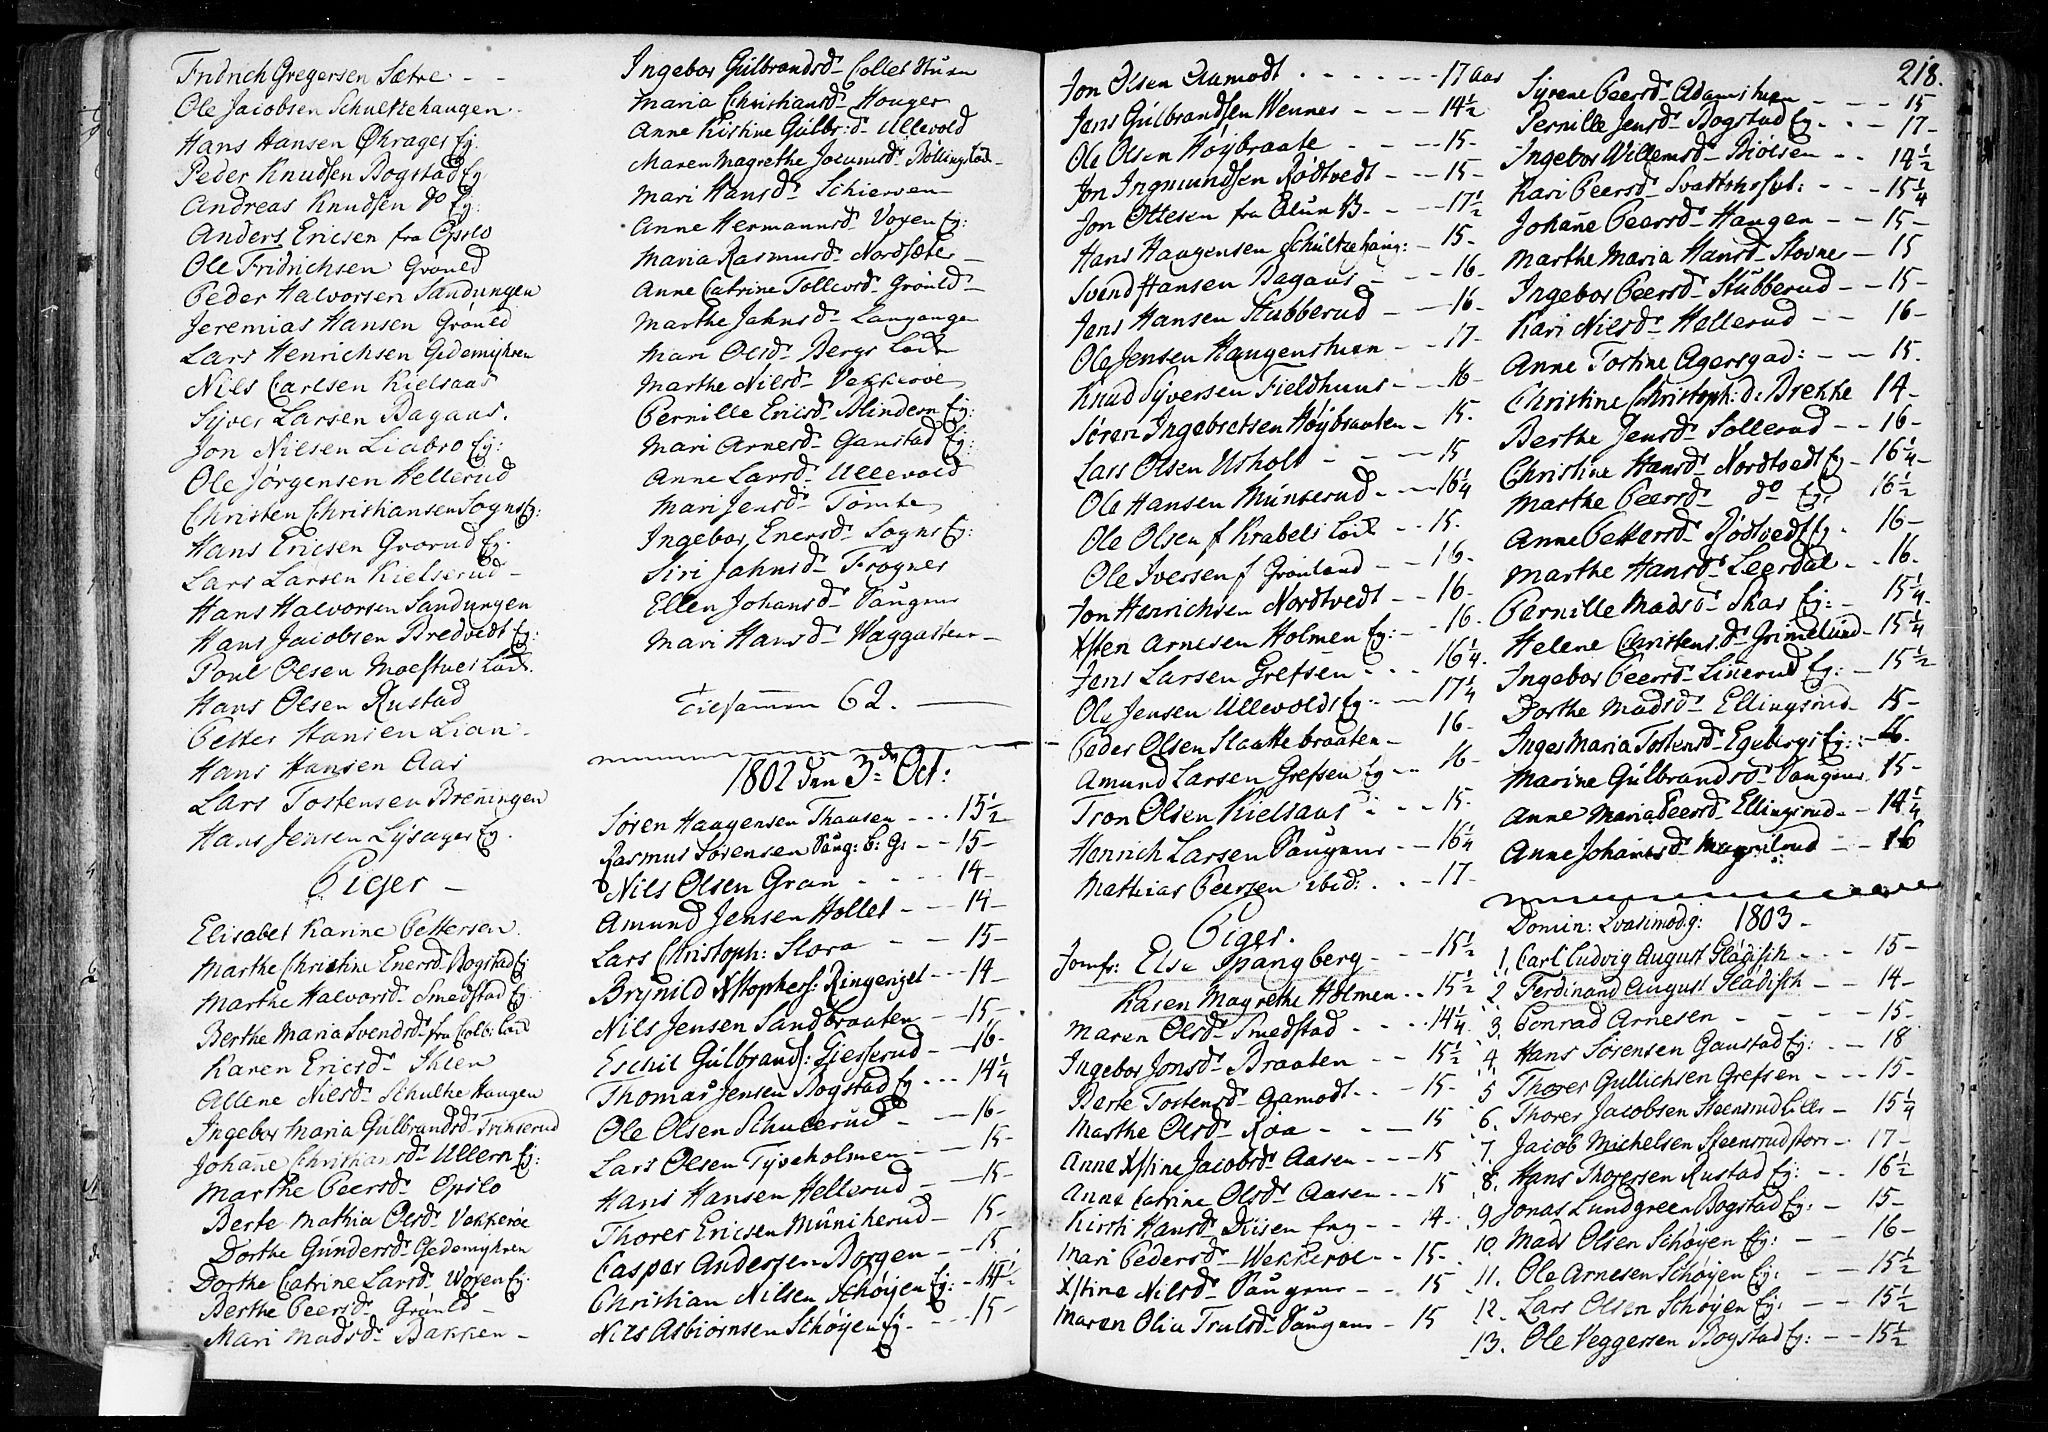 Fridrich Gregersen Sætre - -
Ole Jacobsen Schultzehaugen
Hans Hansen Økrages Eg.
Peder Knudsen Bogstad Eg
Andreas Knudsen do Eg:
Anders Ericsen fra Opslo
Ole Fridrichsen Grönld
Peder Halvorsen Sandungen
Jeremias Hansen Grönld
Lars Henrichsen Gedemyhren
Nils Carlsen Kielsaas
Syver Larsen Bagaas.
Jon Nielsen Liabro Eg:
Ole Jörgensen Hellerud
Christen Christiansen Sogns Eg:
Hans Ericsen Grorud Eg.
Lars Larsen Kielserud -
Hans Halvorsen Sandungen
Hans Jacobsen Bredvedt Eg:
Poul Olsen Moestues Löck.
Hans Olsen Rustad
Petter Hansen Lian -
Hans Hansen Aas
Lars Tostensen Breñingen
Hans Jensen Lysager Eg.
Piger -
Elisabet Karine Pettersen.
Marthe Christine Enersd. Bogstad Eg
Marthe Halvorsd. Smedstad Eg:
Berthe Maria Svendsd. fra Colb: Löck
Karen Ericsd. Skeen
Allene Nilsd. Schultzehaugen
Ingebor Maria Gülbrandsd. Trinserud
Johañe Christiansd. Ullern Eg:
Marthe Peersd. Opslo
Berte Mathia Olsd. Vekkeröe
Dorthe Gündersd. Gedemyhren
Dorthe Catrine Larsd. Voxen Eg:
Berthe Peersd. Grönld -
Mari Madsd. Bakken -
Ingebor Gülbrandsd. Collet Stuen
Maria Christiansd. Houger
Anne Kistine Gülbr: d. Ullevold
Maren Magrethe Jocumsd. Bölling Löck -
Mari Hansd. Schierven
Anne Hermannsd. Voxen Eg:
Maria Rasmusd. Nordsæter -
Anne Catrine Tollevsd. Grönld -
Marthe Jahnsd. Langange
Mari Olsd. Bergs Löck
Marthe Nilsd. Vekkeröe
Pernille Ericsd. Blindern Eg:
Mari Arnesd. Gaustad Eg:
Anne Larsd. Ullevold
Mari Jensd. Tomte
Ingebor Enersd. Sogns Eg:
Siri Jahnsd. Frogner
Ellen Johansd. Saugene
Mari Hansd. Vaggesteen -
Tilsamen 62. -
1802 den 3de Oct:
Sören Haagensen Thaasen - - - 15½
Rasmus Sörensen Saug: b: g: - - 15 -
Nils Olsen Gran - - - - 14 -
Amund Jensen Hollet - - - 14 -
Lars Christoph: Stora - - 15 -
Brynild Xstophers: Ringeriget - - - 14 -
Nils Jensen Sandbraaten - - 15 -
Eschil Gülbrands: Giesserud - - 16 -
Thomas Jensen Bogstad Eg - - - 14¼
Ole Olsen Schullerud - - 16 -
Lars Olsen Tyveholmen - - 15 -
Hans Hansen Hellerud - - 15 -
Thores Ericsen Münkerud - 15 -
Casper Andersen Borgen - - 15
Christian Nilsen Schöyen Eg: - 14½
Nils Asbiörnsen Schöyen Eg - - - 15 -
218.
Jon Olsen Aamodt - - - - - 17 Aar
Jens Gülbrandsen Vennes - - - 14½
Ole Olsen Höybraate - - - 15 -
Jon Ingmundsen Rödtvedt - - 15 -
Jon Ottesen fra Alun B. - - - 17½
Hans Haagensen Schültzehaug: - 15 -
Svend Hansen Bagaas - - - 16 -
Jens Hansen Stubberud - - 16 -
Ole Jensen Haugenstuen - - 17 -
Knud Syversen Fieldhuus - - - 16 -
Sören Ingebretsen Höybraaten - 15.
Lars Olsen Usholt - - - 15
Ole Hansen Münkerud - - - 16¼
Ole Olsen f Krabels Löck - - 15.
Ole Iversen f Grönland - - 16 -
Jon Henrichsen Nordtvedt - - 16 -
Xsten Arnesen Holmen Eg: - - 16.
Jens Larsen Grefsen - - - 16¼.
Ole Jensen Ullevolds Eg - - 17¼
Peder Olsen Slaattebraaten - 16 -
Amund Larsen Grefsen Eg - - 16 -
Tron Olsen Kielsaas - - - 15 -
Henrich Larsen Saugene - - 16¼
Mathias Peersen ibid: - - - 17 -
Piger.
Jomfr: Else Spangberg - - - 15½
Karen Magrethe Holmen - - 15½
Maren Olsd. Smedstad - - - - 14¼
Ingebor Jonsd. Braaten - - 15½
Berte Tostensd. Aamodt - - - 15 -
Marthe Olsd. Röa - - - 15
Anne Xstine Jacobsd. Aasen - - - 15
Anne Catrine Olsd. Aasen - - 15
Kirsti Hansd. Diisen Eng - - 14 -
Mari Pedersd. Wekkeröe - - 15 -
Xstine Nilsd. Saugene - - 15
Maren Olia Trulsd. Saugene - 15
Syrene Peersd. Adamstuen - - - 15
Pernille Jensd. Bogstad Eg - - - 17 -
Ingebor Willemsd. Biölsen - - 14½
Kari Peersd. - - - 15¼
Johañe Peersd. Haugen - - 15 -
Marthe Maria Hansd. Stovner - 15
Ingebor Peersd. Stübberud - - 15 -
Kari Nilsd. Hellerud - - 16 -
Anne Tostine Agersgad: - - 15.
Christine Christoph: d: Brekke 14 -
Berthe Jensd. Sollerud - - 16 -
Christine Hansd. Nordtvedt Eg - 16¼ -
Marthe Peersd. do Eg. 16½
Anne Pettersd. Rödtvedt Eg. 16 -
Marthe Hansd. Leerdal - - 16.
Pernille Madsd. Skar Eg: - 15¼.
Helene Christensd. Grimelund - 15¼
Ingebor Peersd. Liñerud Eg: - 15½
Dorthe Madsd. Ellingsrud - 15 -
Inger Maria Tostensd. Egebergs Eg: - 16.
Marine Gülbrandsd. Saugene 15 -
Anne Maria Peersd. Ellingsrud - - 14¼
Anne Johannesd. - - 16
Domin: Quasimodog: 1803 -
1. Carl Ludvig August Gladisch - - - 15 -
2 Ferdinand August Gladisch - - 14 -
3. Conrad Arnesen - - - - 15 -
4. Hans Sörensen Gaustad Eg: - - 18
5 Thores Gullichsen Grefsen - - - 15 -
6. Thores Jacobsen Steensrud Lille - 15¼
7. Jacob Michelsen Steensrud stor - 17 -
8. Hans Thoresen Rustad Eg: - - 16½
9 Jonas Lundgreen Bogstad Eg: - 15 -
10. Mads Olsen Schöyen Eg: - - 16 -
11. Ole Arnesen Schöyen Eg: - - 15½
12. Lars Olsen Schöyen Eg: - - 15½
13. Ole Veggersen Bogstad Eg: - - 15½